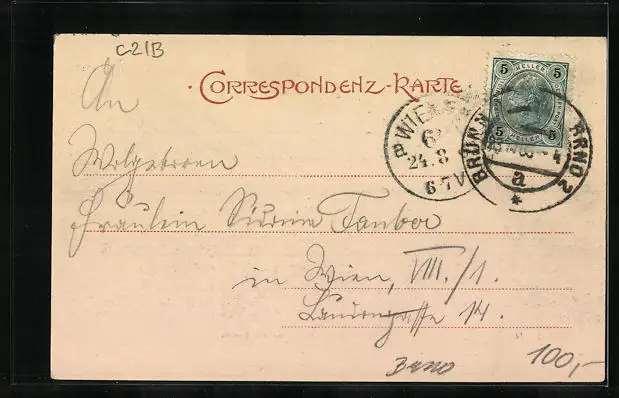 C21B
CORRESPONDENZ-KARTE
5 HELLER 5
5 HELLER 5
WIEN
24. 8
6-7V
BRÜNN BRNO 2
a
*
An
Wolgeboren
Fräulein Tauber
in Wien, VIII./1.
14.
Brno
100,-